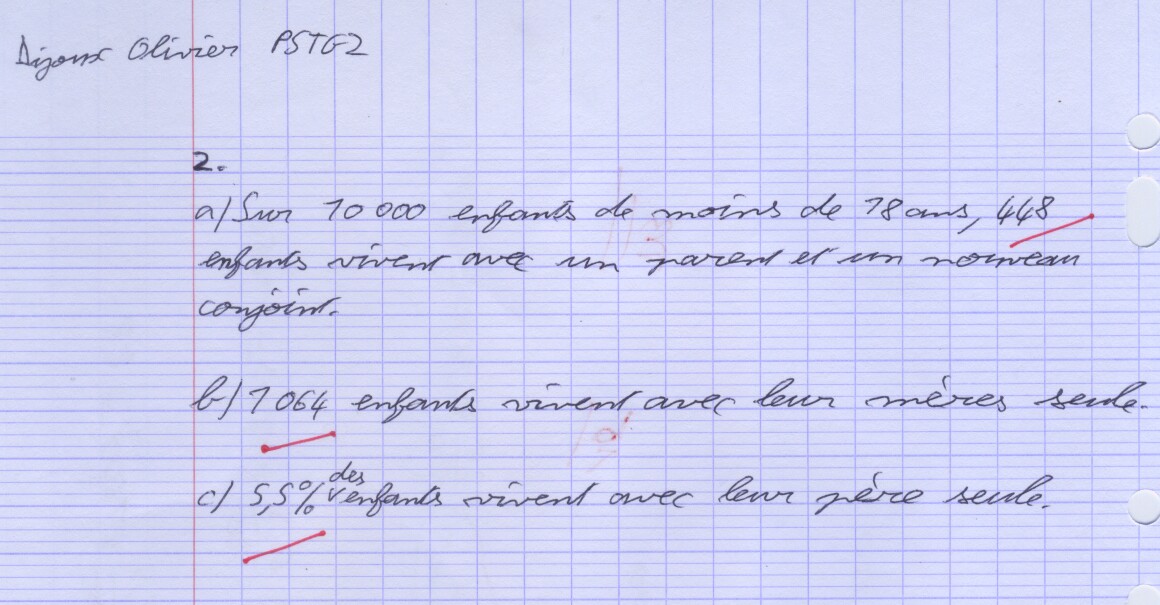 Dijoux Olivier PSTG2
2.
a) Sur 10 000 enfants de moins de 18 ans, 448
enfants vivent avec un parent et un nouveau
conjoint.
b) 1 064 enfants vivent avec leur mères seule.
c) 5,5% des enfants vivent avec leur père seule.